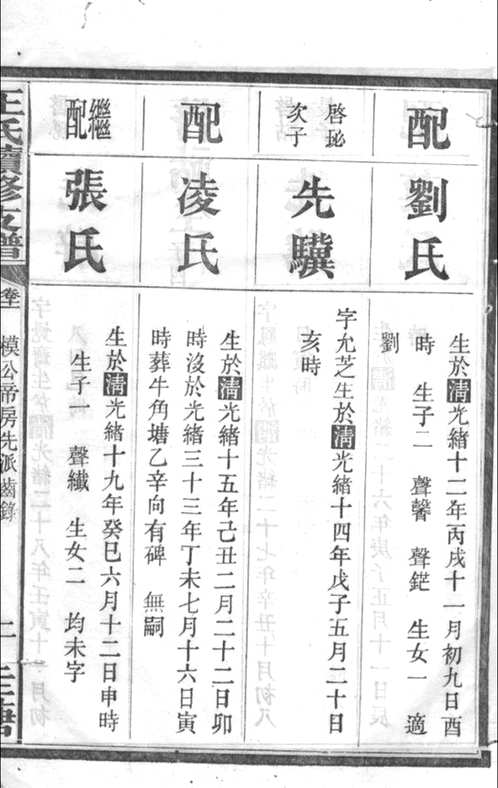 配
劉氏
生於清光緒十二年丙戌十一月初九日酉
時　生子二　聲馨　聲鋩　生女一　適
劉
啓珌
次子
先驥
字允芝生於清光緒十四年戊子五月二十日
亥時
配
凌氏
生於清光緒十五年己丑二月二十二日卯
時沒於光緒三十三年丁未七月十六日寅
時葬牛角塘乙辛向有碑　無嗣
繼
配
張氏
生於清光緒十九年癸巳六月十二日申時
生子一　聲纖　生女二　均未字
王氏續修支譜
模公帝房先派齒錄
二